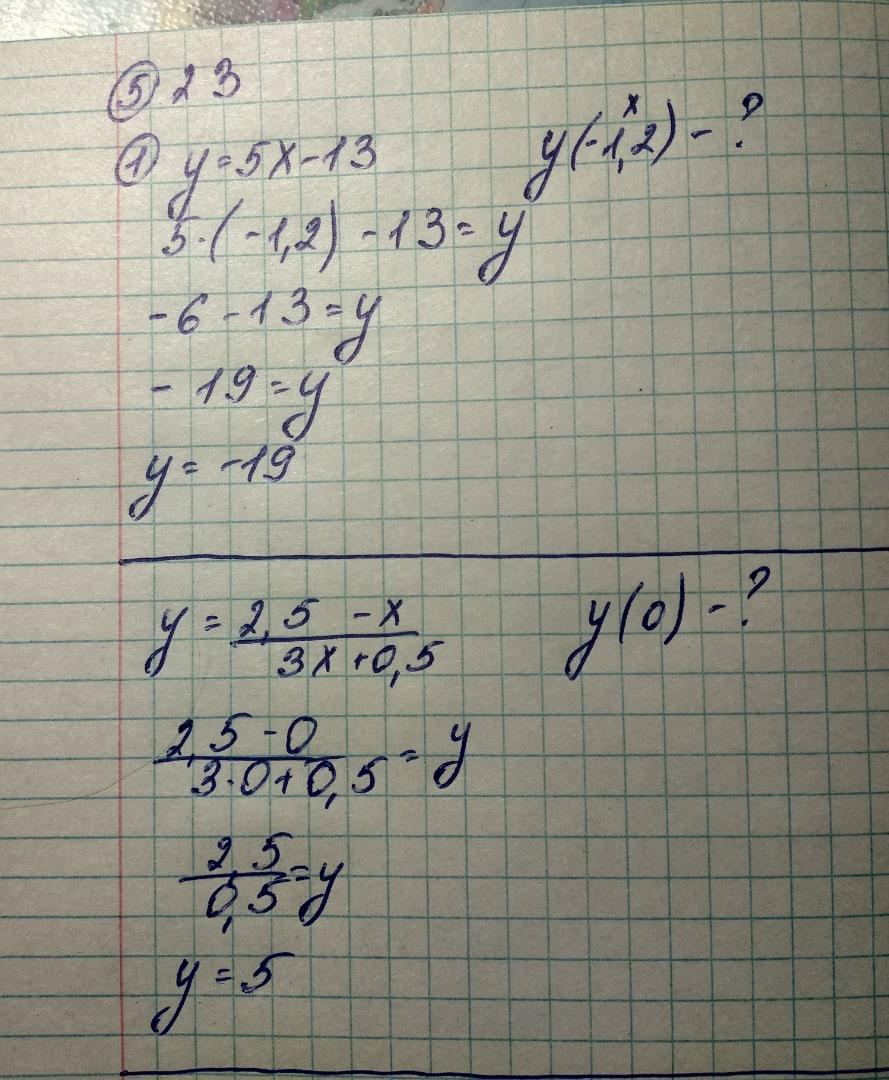 ⑤ 2 3
① y = 5x - 13 y(-1,2) - ?
x
5·(-1,2) - 13 = y
-6 - 13 = y
- 19 = y
y = -19
y = 2,5 - x y(0) - ?
3x + 0,5
2,5 - 0 = y
3·0 + 0,5
2,5 = y
0,5
y = 5